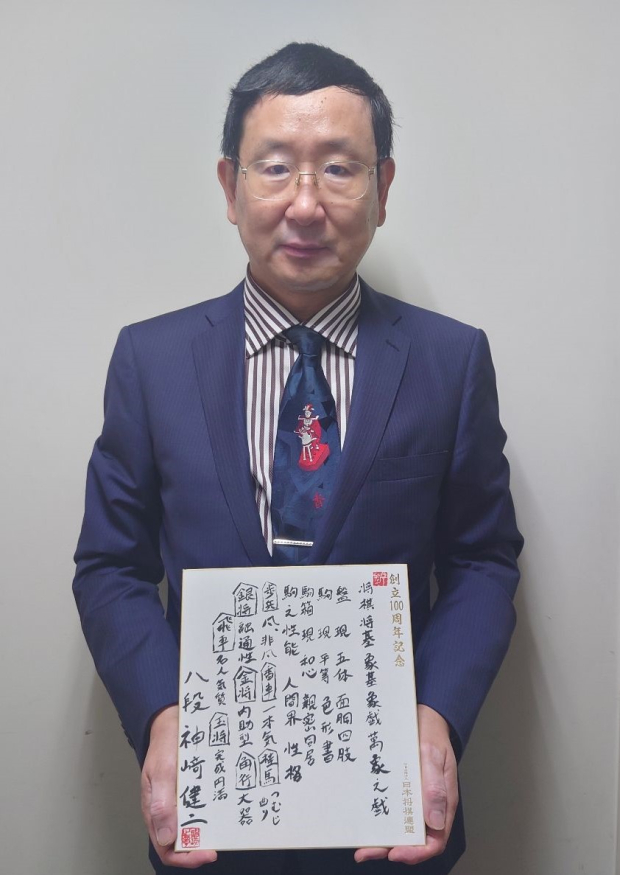 創立100周年記念
将棋将基象棊象戲萬象之戯
盤現五体面胴四肢
駒現平等色形書
駒箱現和心親密同居
駒之性能人間界性格
歩兵 香車一本気桂馬つむじ曲り
銀将融通性金将内助型角行大器
飛車名人気質玉将完成円満
八段神﨑健二
日本将棋連盟